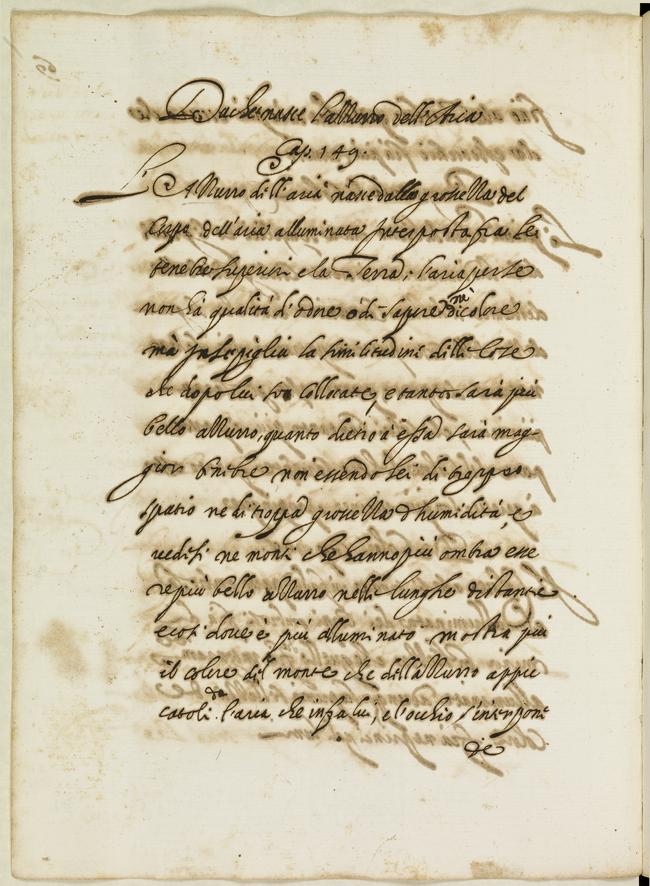 Da che nasce l'azzurro dell'Aria
Cap. 149.
L'Azzurro dell'aria nasce dalla grossezza del
corpo dell'aria alluminata Interposta fra le
tenebre superiori e la Terra; l'aria per se
non hà qualità d'odore ò di sapore mà di colore
mà In se piglia la similitudini delle Cose
che dopo lui son Collocate, e tanto sarà più
bello azzurro, quanto dietro à essa sarà mag-
gior tenebre non essendo lei di troppo
spatio ne di troppa grossezza d'humidità, e
vedesi ne monti che hanno più ombra esse
re più bello azzurro nelle lunghe distantie
e così dove è più alluminato mostra più
il colore del monte che dell'azzurro appic
catoli da l'aria che infra lui, e l'occhio s'interpone